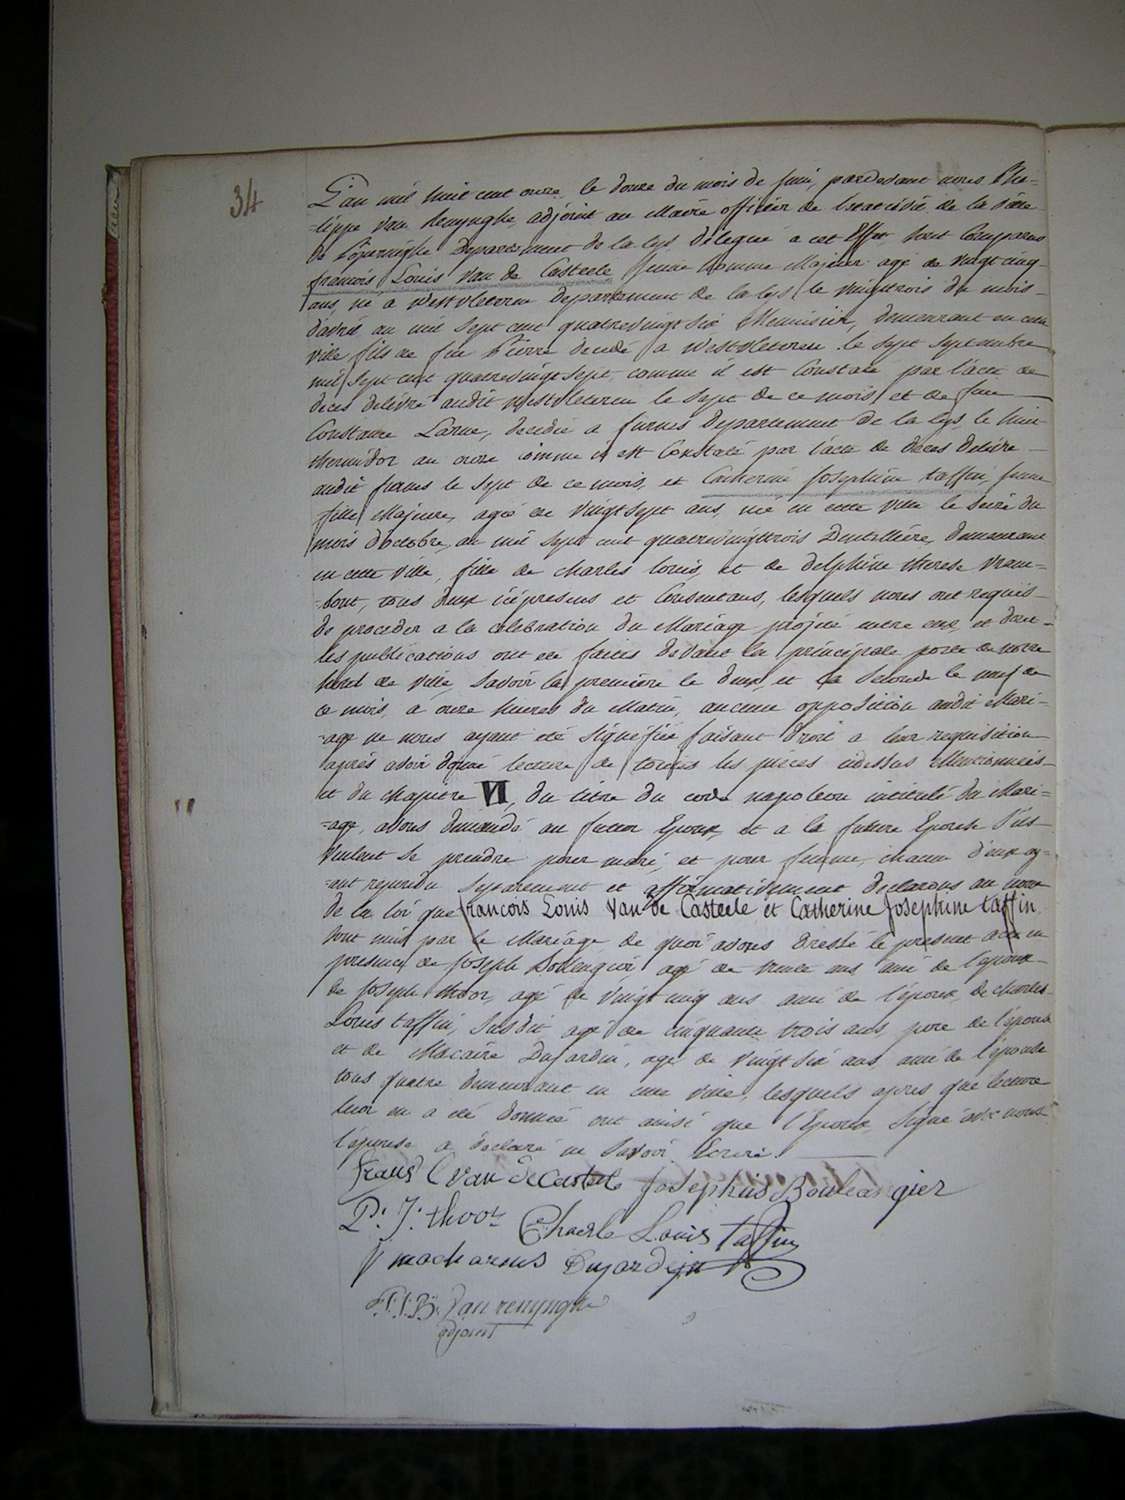 34
L'an mil huit cent onze, le douze du mois de Juin, pardevant nous Phi-
-lippe Van Renynghe, adjoint au Maire officier de l'état civil de la ville
de Poperinghe Departement de la Lys délégué a cet Effet, sont comparus
françois Louis Van de Casteele Jeune homme Majeur agé de vingt cinq
ans, né a Westvleteren Departement de la Lys, le vingt trois du mois
d'avril an mil sept cent quatrevingt six, Menuisier, demeurant en cette
ville fils de feu Pierre decedé a Westvleteren le sept Septembre
mil sept cent quatrevingt sept comme il est Constaté par l'acte de
deces delivré audit Westvleteren le sept de ce mois, et de feue
Constance Larue, decedée a furnes Departement de la Lys, le huit
thermidor an onze comme il est Constaté par l'acte de deces delivré
audit furnes le sept de ce mois, et Catherine Josephine taffin Jeune
fille Majeure, agée de vingt sept ans, née en cette ville le seize du
mois d'octobre, an mil sept cent quatrevingttrois Dentellière, demeurant
en cette ville, fille de Charles Louis, et de delphine therese Vram-
-bout, tous deux ici présens et Consentans, lesquels nous ont requis
de proceder a la celebration du Mariage projeté entre eux, et dont
les publications ont été faites devant la principale porte de notre
hotel de ville, Savoir la première le deux, et la seconde le neuf de
ce mois, a onze heures du Matin, aucune opposition audit Mari-
-age ne nous ayant été signifiée faisant droit a leur requisition
après avoir donné lecture de toutes les pièces cidessus Mentionnées
et du chapitre VI, du titre du code napoleon intitulé du Mari-
-age, avons demandé au futur Epoux, et a la future Epouse s'ils
veulent se prendre pour mari, et pour femme, chacun d'eux ay-
-ant repondu separement et affirmativement declarons au nom
de la loi que francois Louis Van de Casteele et Catherine Josephine taffin
sont unis par le Mariage de quoi avons dressé le present acte en
presence de Joseph Boulengier agé de trente ans ami de l'époux
de Joseph thoor, agé de vingt cinq ans ami de l'époux, de charles
Louis taffin, susdit agé de cinquante trois ans, pere de l'épouse
et de Macaire Dujardin, agé de vingt six ans, ami de l'épouse
tous quatre demeurant en cette ville, lesquels apres que lecture
leur en a été donnée ont ainsi que l'Epoux signé avec nous
l'épouse a declaré ne savoir Ecrire.
frans L van de Casteele Josephus Bouleangier
P. J. thoor Charle Louis Taffin
macharius Dujardijn
P.J.B. Van renynghe
adjoint